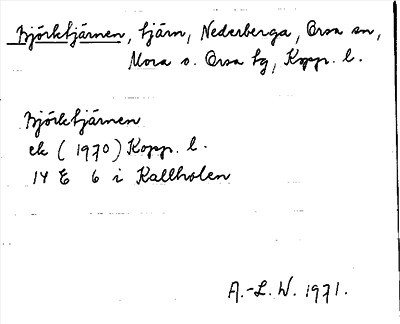 Björktjärnen, tjärn, Nederberga, Orsa sn,
Mora o. Orsa tg, Kopp. l.
Björktjärnen
ek (1970) Kopp. l.
14 E 6 i Kallholen
A.-L. W. 1971.